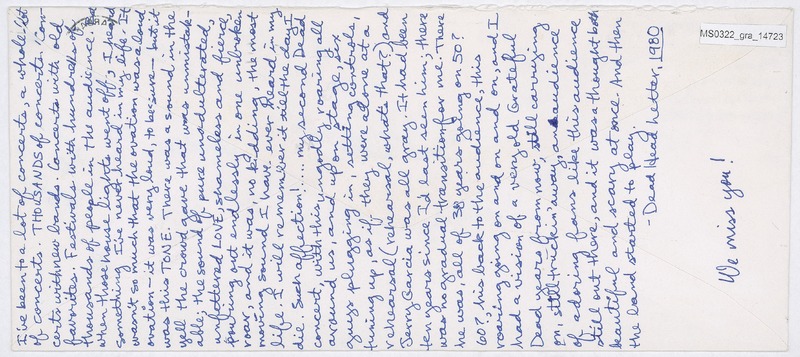 I've been to a lot of concerts, a whole lot
of concerts. THOUSANDS of concerts. Con-
certs with new bands. Concerts with old
favorites. Festivals with hundreds of
thousands of people in the audience. But
when those house lights went off, I heard
something I've never heard in my life. It
wasn't so much that the ovation was a loud
ovation - it was very loud, to be sure - but it
was this TONE. There was a sound in the
yell the crowd gave that was unmistak-
able; the sound of pure unadulterated,
unfettered LOVE, shameless and fierce,
pouring out endlessly in one unbroken
roar, and it was, no kidding, the most
moving sound I have ever heard in my
life. I will remember it till the day I
die. Such affection! ..... my second Dead
concert, with this ungodly roaring all
around us, and up on stage, six
guys plugging in, setting controls,
tuning up, as if they were alone at a
rehearsal (rehearsal, what's that?) and
Jerry Garcia was all gray. It had been
ten years since I'd last seen him; there
was no gradual transition for me. There
he was, all of 38 years going on 50?
60?, his back to the audience, this
roaring going on and on and on, and I
had a vision of a very old Grateful
Dead years from now, still carrying
on, still truckin' away, audience
of adoring fans like this audience
still out there, and it was a thought both
beautiful and scary at once. And then
the band started to play
- Dead Head letter, 1980
We miss you!
MS0322_gra_14723